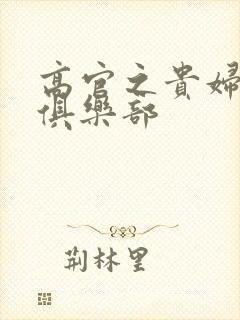 高官之貴婦
俱樂部
荆林里